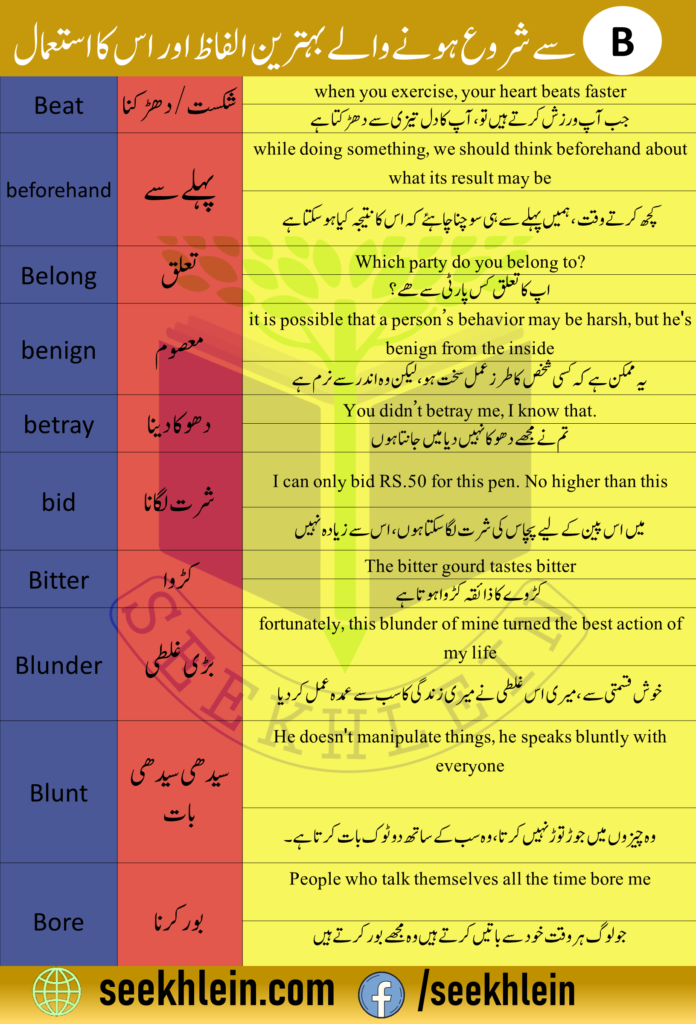 B سے شروع ہونے والے بہترین الفاظ اور اس کا استعمال
Beat
شکست/دھڑکنا
when you exercise, your heart beats faster
جب آپ ورزش کرتے ہیں تو، آپ کا دل تیزی سے دھڑکتا ہے
beforehand
پہلے سے
while doing something, we should think beforehand about
what its result may be
کچھ کرتے وقت، ہمیں پہلے سے ہی سوچنا چاہئے کہ اس کا نتیجہ کیا ہو سکتا ہے
Belong
تعلق
Which party do you belong to?
اپ کا تعلق کس پارٹی سے ھے؟
benign
معصوم
it is possible that a person’s behavior may be harsh, but he's
benign from the inside
یہ ممکن ہے کہ کسی شخص کا طرز عمل سخت ہو، لیکن وہ اندر سے نرم ہے
betray
دھوکا دینا
You didn’t betray me, I know that.
تم نے مجھے دھوکا نہیں دیا میں جانتا ہوں
bid
شرت لگانا
I can only bid RS.50 for this pen. No higher than this
میں اس پین کے لیے پچاس کی شرت لگا سکتا ہوں، اس سے زیادہ نہیں
Bitter
کڑوا
The bitter gourd tastes bitter
کڑوے کا ذائقہ کڑوا ہوتا ہے
Blunder
بڑی غلطی
fortunately, this blunder of mine turned the best action of
my life
خوش قسمتی سے، میری اس غلطی نے میری زندگی کا سب سے عمدہ عمل کر دیا
Blunt
سیدھی سیدھی
بات
He doesn't manipulate things, he speaks bluntly with
everyone
وہ چیزوں میں جوڑ توڑ نہیں کرتا، وہ سب کے ساتھ دو ٹوک بات کرتا ہے۔
Bore
بور کرنا
People who talk themselves all the time bore me
جو لوگ ہر وقت خود سے باتیں کرتے ہیں وہ مجھے بور کرتے ہیں
SEEKHLEIN
seekhlein.com
/seekhlein